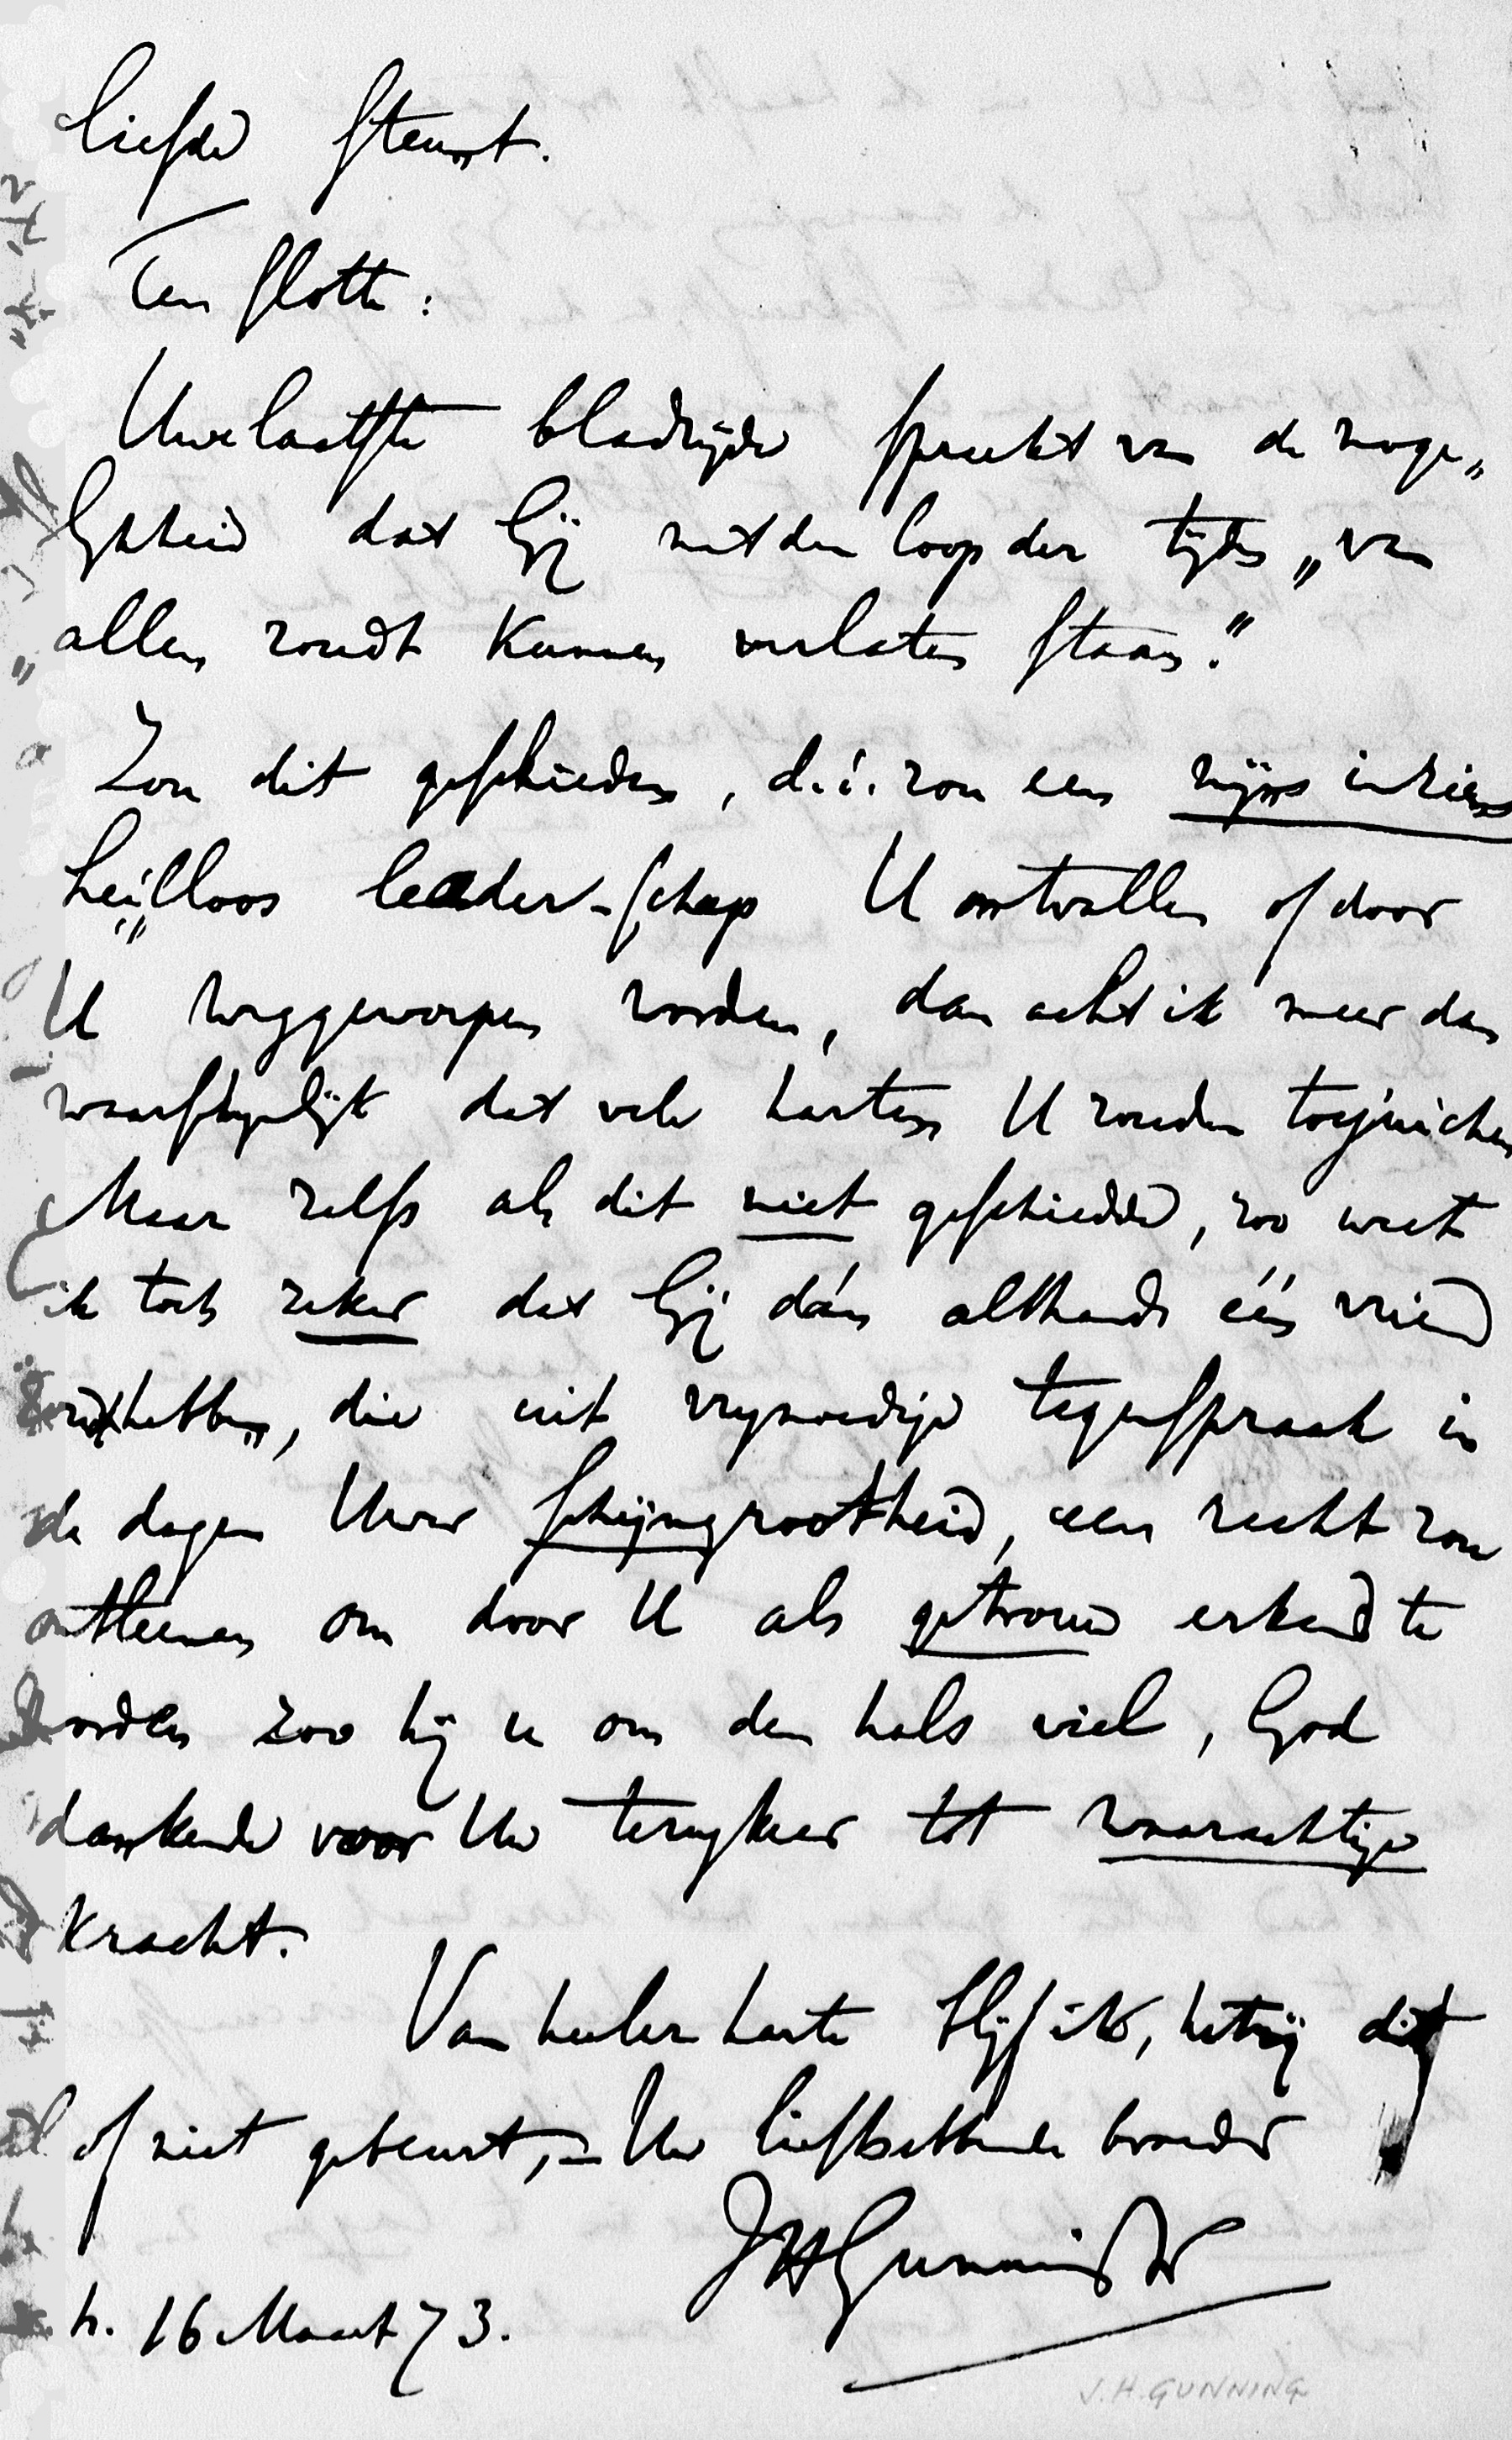 liefde steunt.
Ten slotte:
Uwe laatste bladzijde spreekt van de moge„
lijkheid dat Gij met den loop der tijden „van
„allen zoudt kunnen verlaten staan."
Zou dit geschieden, d.i. zou een mijns inziens
heilloos leader-schap U ontvallen of door
U weggeworpen worden, dan acht ik meer dan
waarschijnlijk dat vele harten U zouden toejuichen
Maar zelfs als dit niet geschiedde, zoo weet
ik toch zeker dat Gij dán althands één vriend
zoudt hebben, die uit vrijmoedige tegenspraak in
de dagen Uwer schijngrootheid, een recht zou
ontleenen om door U als getrouw erkend te
worden zoo hij u om den hals viel, God
dankende voor Uw terugkeer tot waarachtige
kracht.
Van heeler harte blijf ik, hetzij dit
of niet gebeurt, – Uw liefhebbende broeder
JHGunning Jr
h. 16 Maart 73.
J.H. GUNNING